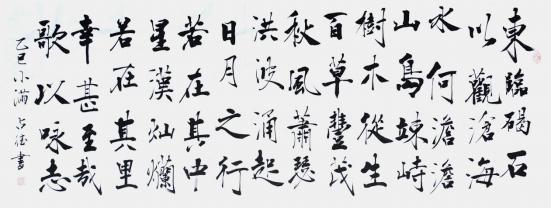 東臨碣石
以觀滄海
水何澹澹
山島竦峙
樹木從生
百草豐茂
秋風蕭瑟
洪波涌起
日月之行
若在其中
星漢灿爛
若在其里
幸甚至哉
歌以咏志
乙巳小满 占德書